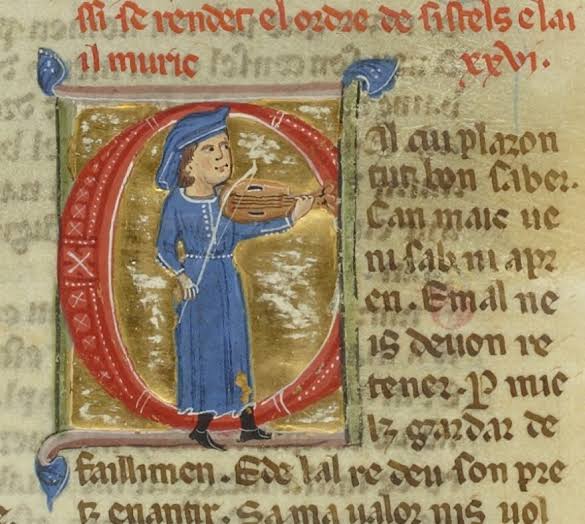 ssi se rendet el ordre de sistels e lai
il muric xxvi.
CIl cui plazon
tuit bon saber.
Can maic ue
ni sab ni apr
en. E mal ne
is deuon re
tener. P mie
lz gardar de
faillimen. E de lal re deu son pre
tz enantir. Sa ma ualor nis uol